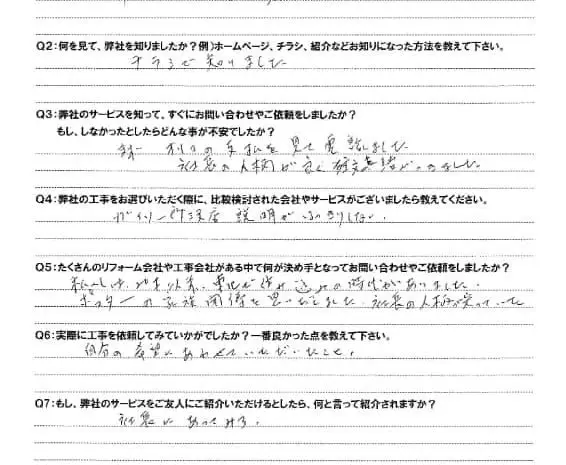 Q2：何を見て、弊社を知りましたか？例）ホームページ、チラシ、紹介などお知りになった方法を教えて下さい。
チラシで知りました
Q3：弊社のサービスを知って、すぐにお問い合わせやご依頼をしましたか？
もし、しなかったとしたらどんな事が不安でしたか？
を見て電話しました
社長の人柄が良く
Q4：弊社の工事をお選びいただく際に、比較検討された会社やサービスがございましたら教えてください。
説明がはっきりしない．
Q5：たくさんのリフォーム会社や工事会社がある中で何が決め手となってお問い合わせやご依頼をしましたか？
の時代がありました．
の家族関係を思いだしました．社長の人柄が
Q6：実際に工事を依頼してみていかがでしたか？一番良かった点を教えて下さい。
自分の希望にあわせていただいたこと．
Q7：もし、弊社のサービスをご友人にご紹介いただけるとしたら、何と言って紹介されますか？
社長にあってみろ．